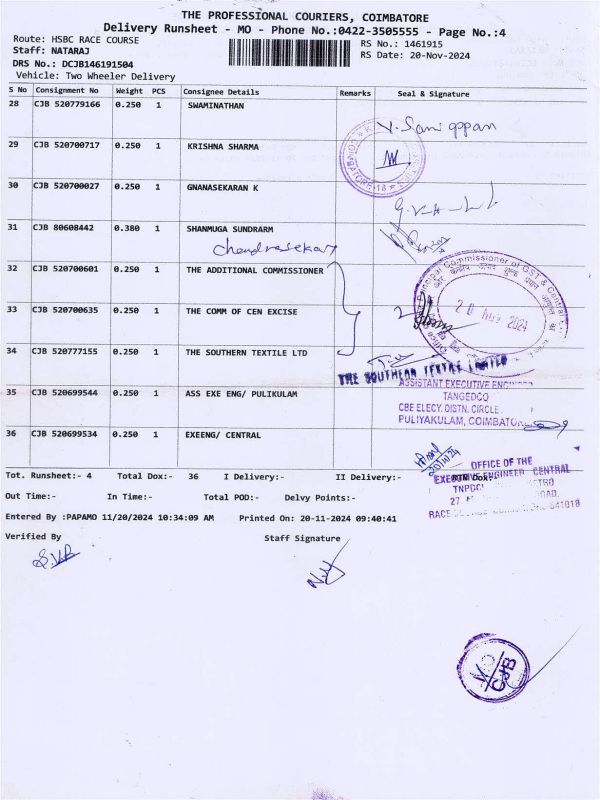 THE PROFESSIONAL COURIERS, COIMBATORE
Delivery Runsheet - MO - Phone No.:0422-3505555 - Page No.:4
Route: HSBC RACE COURSE
RS No.: 1461915
Staff: NATARAJ
RS Date: 20-Nov-2024
DRS No.: DCJB146191504
Vehicle: Two Wheeler Delivery
S No Consignment No Weight PCS Consignee Details Remarks Seal & Signature
28 CJB 520779166 0.250 1 SWAMINATHAN
29 CJB 520700717 0.250 1 KRISHNA SHARMA
30 CJB 520700027 0.250 1 GNANASEKARAN K
31 CJB 80608442 0.380 1 SHANMUGA SUNDRARM
Chandrasekar
32 CJB 520700601 0.250 1 THE ADDITIONAL COMMISSIONER
Principal Commissioner of GST & Central
20 NOV 2024
33 CJB 520700635 0.250 1 THE COMM OF CEN EXCISE
34 CJB 520777155 0.250 1 THE SOUTHERN TEXTILE LTD
THE SOUTHERN TEXTILE LIMITED
35 CJB 520699544 0.250 1 ASS EXE ENG/ PULIKULAM
ASSISTANT EXECUTIVE ENGINEER
TANGEDCO
CBE ELECY. DISTN. CIRCLE
PULIYAKULAM, COIMBATORE
36 CJB 520699534 0.250 1 EXEENG/ CENTRAL
20/11/24
OFFICE OF THE
EXECUTIVE ENGINEER CENTRAL
Tot. Runsheet:- 4 Total Dox:- 36 I Delivery:- II Delivery:-
Out Time:- In Time:- Total POD:- Delvy Points:-
Entered By :PAPAMO 11/20/2024 10:34:09 AM Printed On: 20-11-2024 09:40:41
Verified By
Staff Signature
CJB